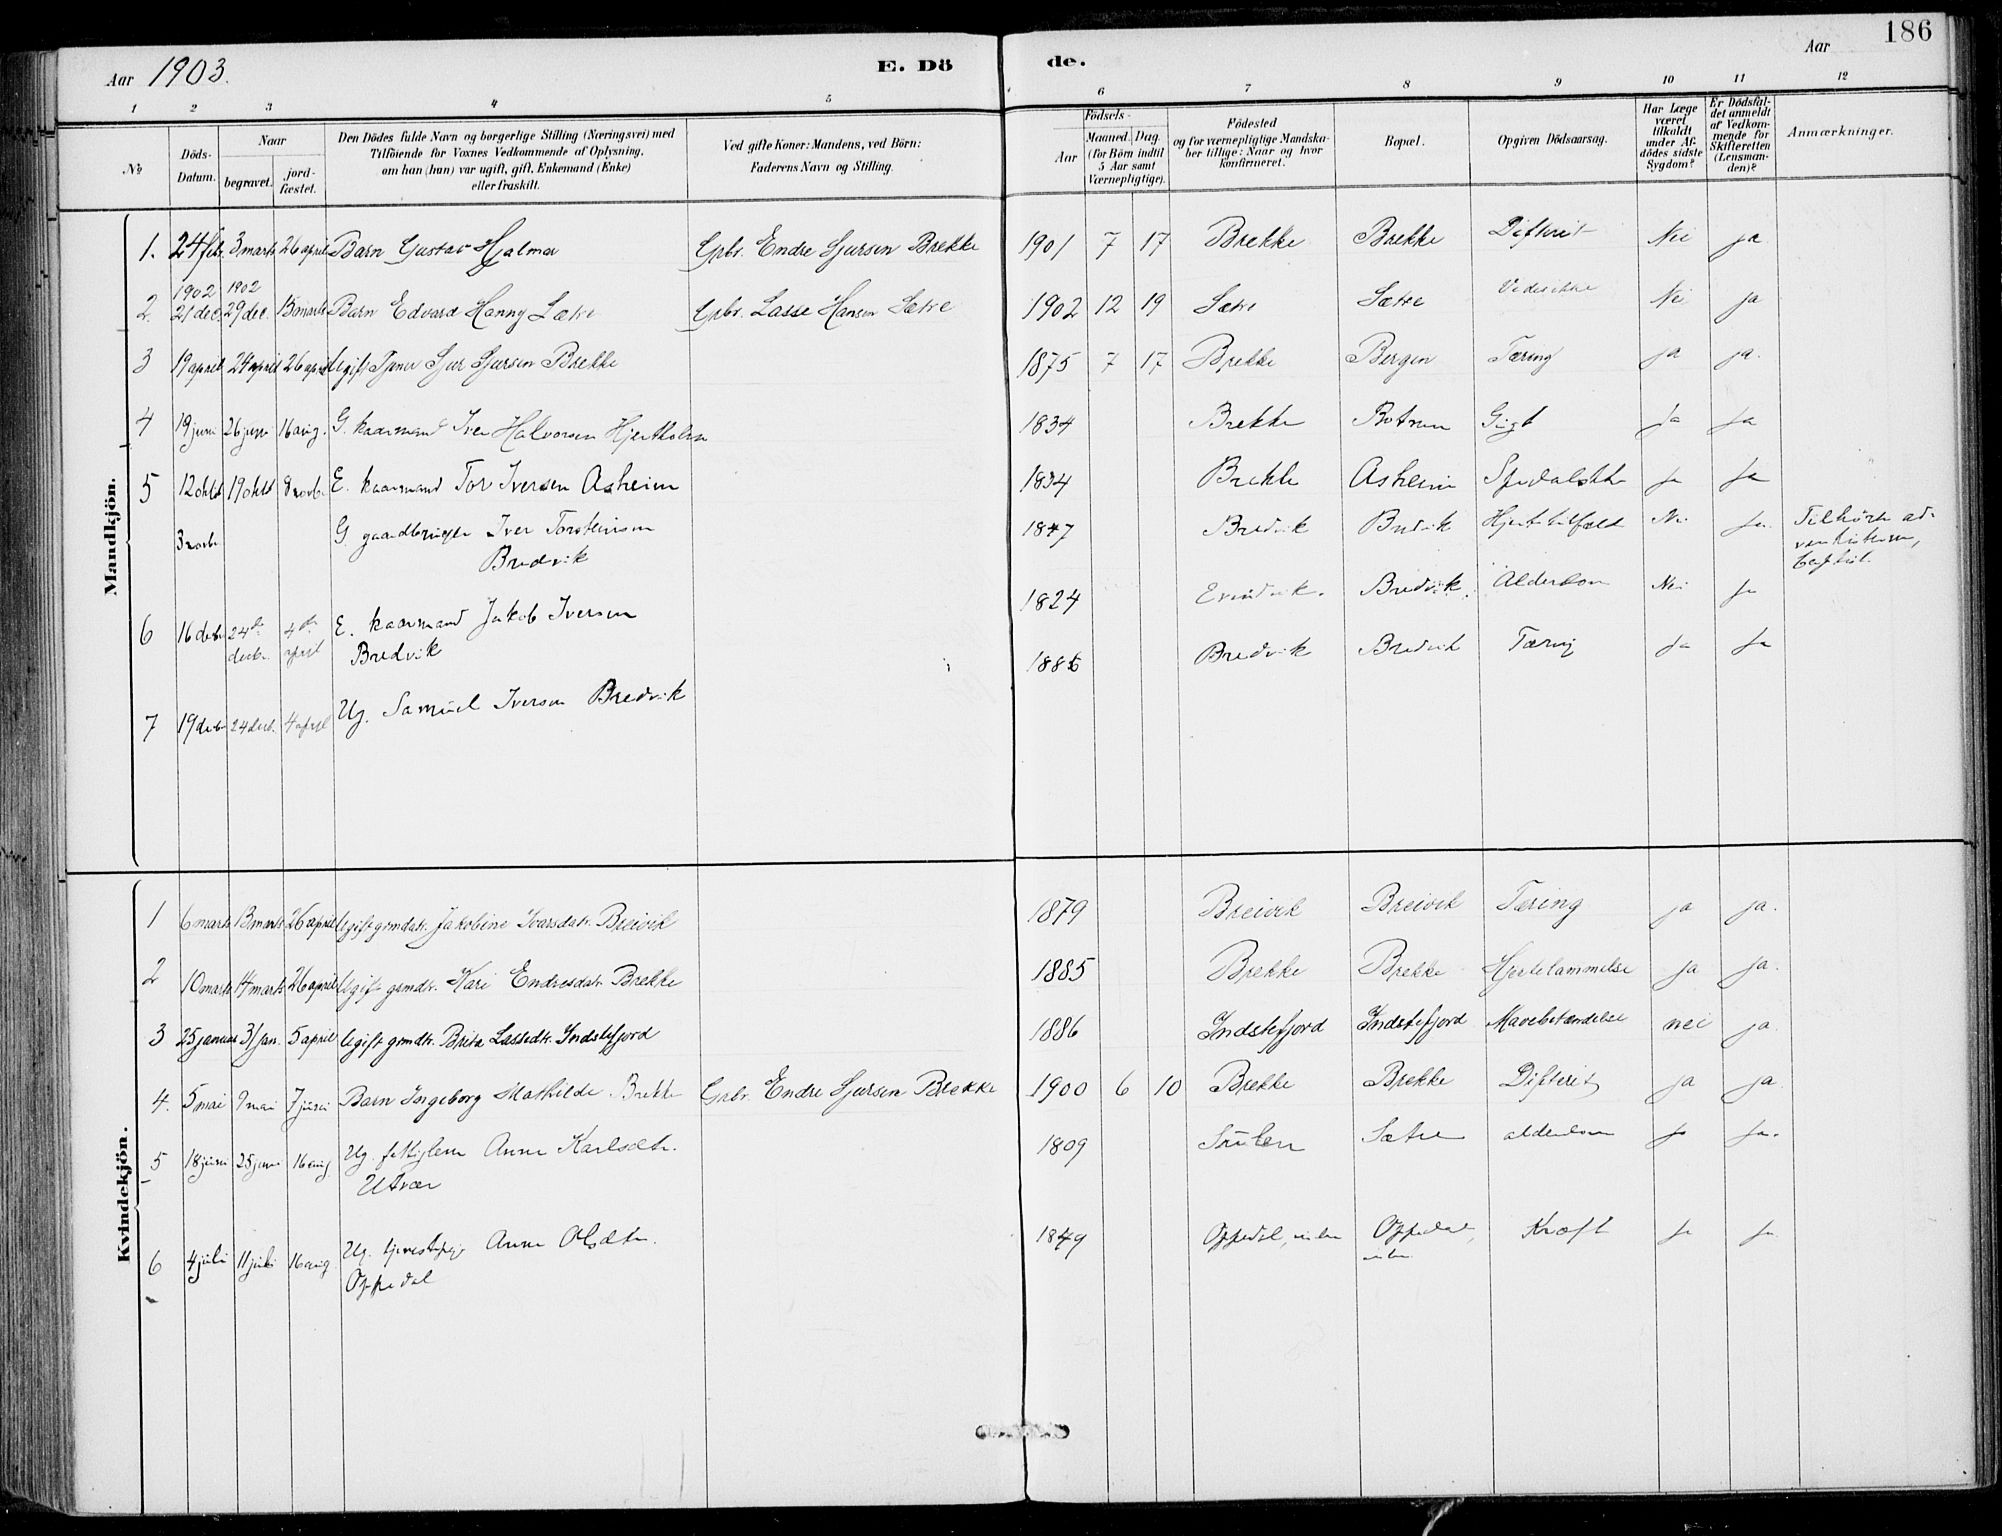 186
Aar 1903. E. Dö de. Aar
1 2 3 4 5 6 7 8 9 10 11 12
No
Döds-Datum.
Naar
begravet.
jord-fæstet.
Den Dödes fulde Navn og borgerlige Stilling (Næringsvei) med
Tilföiende for Voxnes Vedkommende af Oplysning,
om han (hun) var ugift, gift, Enkemand (Enke)
eller fraskilt.
Ved gifte Koner: Mandens, ved Börn:
Faderens Navn og Stilling.
Födsels-
Aar
Maaned. Dag.
(for Börn indtil
5 Aar samt
Værnepligtige).
Födested
og for værnepligtige Mandska-
ber tillige: Naar og hvor
konfirmeret.
Bopæl.
Opgiven Dödsaarsag.
Har Læge
været
tilkaldt
under Af-
dödes sidste
Sygdom?
Er Dödsfal-
det anmeldt
af Vedkom-
mende for
Skifteretten
(Lensman-
den)?
Anmærkninger.
Mandkjön.
1. 24 febr. 3 marts 26 april Barn Gustav Hjalmar Gbr. Endre Sjursen Brekke 1901 7 17 Brekke Brekke Difterit Nei ja
1902 1902
2. 21 dec. 29 dec. 15 marts Barn Edvard Hanny Sætre Gbr. Lasse Hansen Sætre 1902 12 19 Sætre Sætre Vides ikke Nei ja
3 19 april 24 april 26 april Ugift Tjener Sjur Sjursen Brekke 1875 7 17 Brekke Bergen Tæring ja ja.
4 19 juni 26 juni 16 aug. G. kaarmand Iver Halvorsen Hjertholm 1834 Brekke Botnen Gigt Ja Ja
5 12 oktb 19 oktb 8 novbr. E. kaarmand Tor Iversen Asheim 1834 Brekke Asheim Spedalskhed Ja Ja
3 novbr G. gaardbruger Iver Torsteinsen
Bredvik 1847 Bredvik Bredvik Hjertetilfæld Nei Ja. Tilhörte ad-
ventisterne,
6 16 decbr 24de
decbr. 4de
april E. kaarmand Jakob Iversen
Bredvik 1824 Evindvik. Bredvik. Alderdom Nei Ja
7 19 decbr 24 decb. 4 april Ug. Samuel Iversen Bredvik 1886 Bredvik Bredvik Tæring Ja Ja
Kvindekjön.
1 6 marts 13 marts 26 april Ugift grmdatr. Jakobine Ivarsdatr. Breivik 1879 Breivik Breivik Tæring ja ja.
2 10 marts 14 marts 26 april Ugift grmdtr. Kari Endresdatr. Brekke 1885 Brekke Brekke Hjertelammelse ja ja.
3 25 januar 31 jan. 5 april Ugift grmdtr. Brita Lassedtr. Indstefjord 1886 Indstefjord Indstefjord Mavebetændelse nei ja
4. 5 mai 9 mai 7 juni Barn Ingeborg Mathilde Brekke Gbr. Endre Sjursen Brekke 1900 6 10 Brekke Brekke Difterit ja ja
5 18 juni 25 juni 16 aug. Ug. fattiglem Anne Karlsdtr.
Utvær 1809 Sulen Sætre alderdom Ja Ja.
6 4 juli 11 juli 16 aug Ug. tjenestepige Anne Olsdtr.
Oppedal 1849 Oppedal, Oppedal, Kræft Ja Ja.